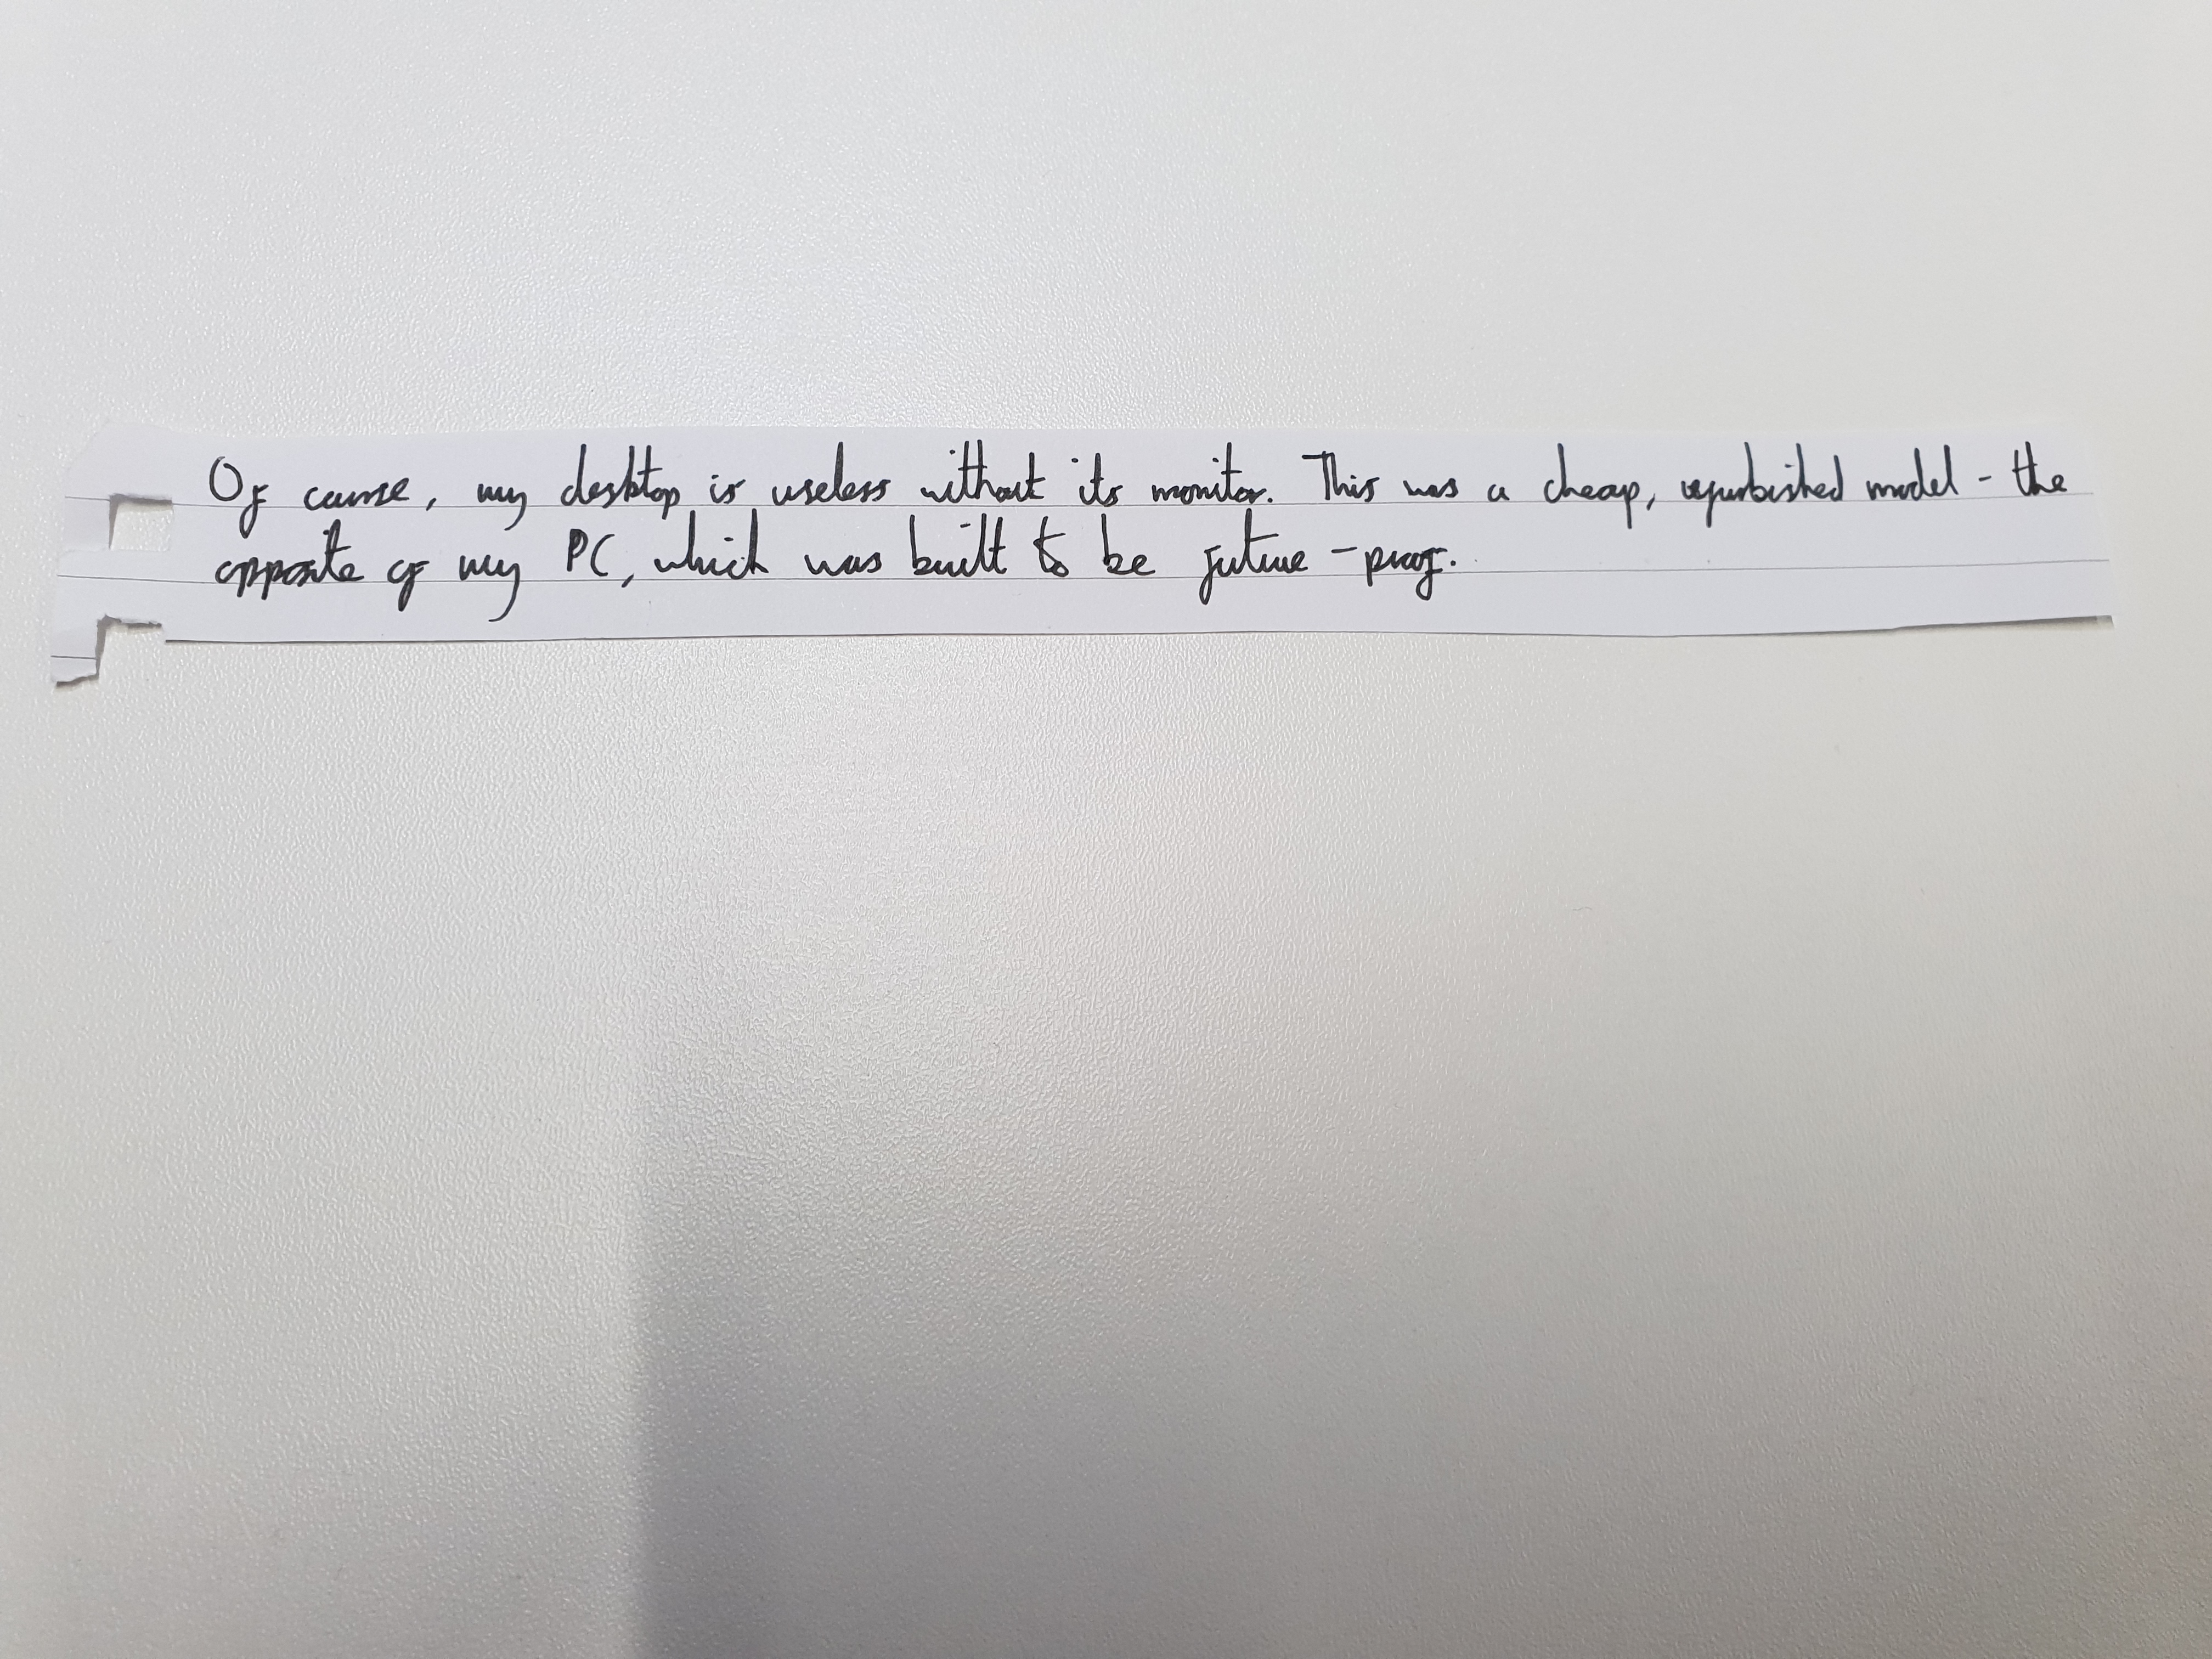 Of course, my desktop is useless without its monitor. This was a cheap, refurbished model - the
opposite of my PC, which was built to be future-proof.